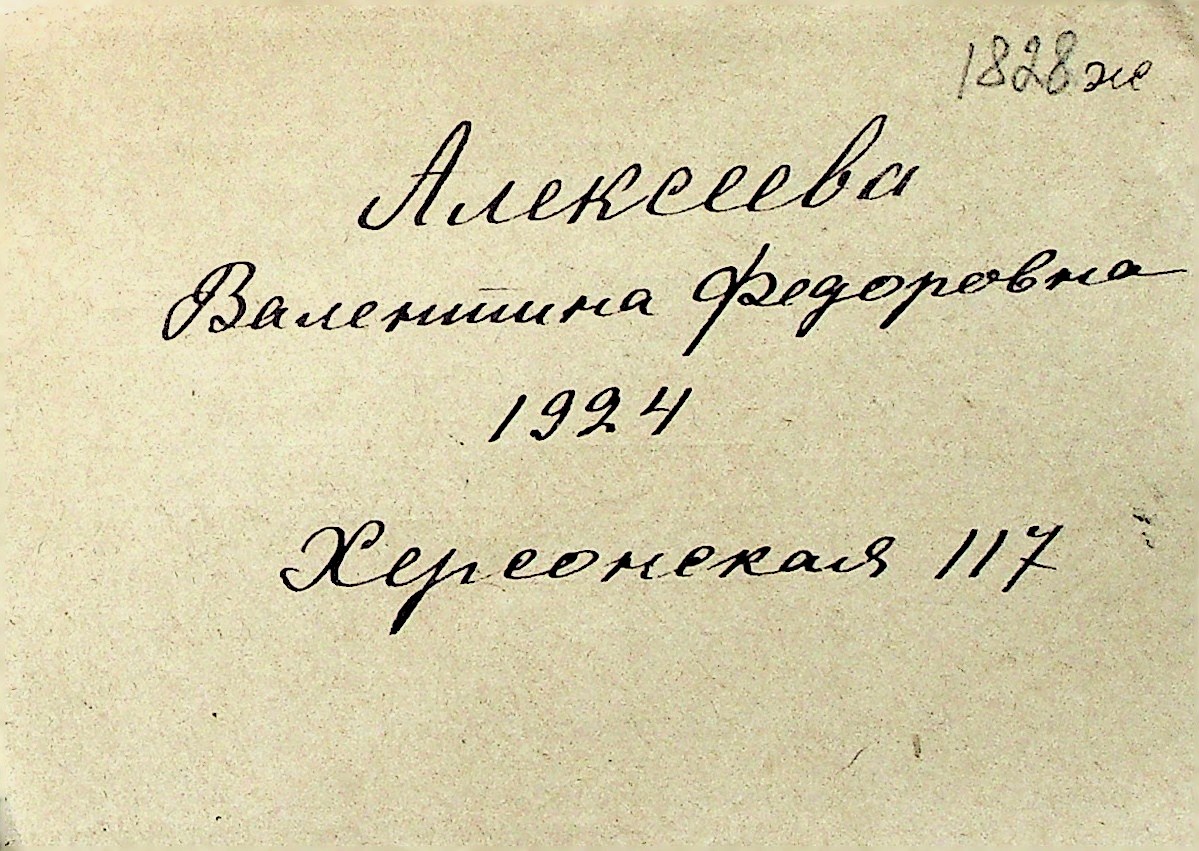 1828ж
Алексеева
Валентина Федоровна
1924
Херсонская 117